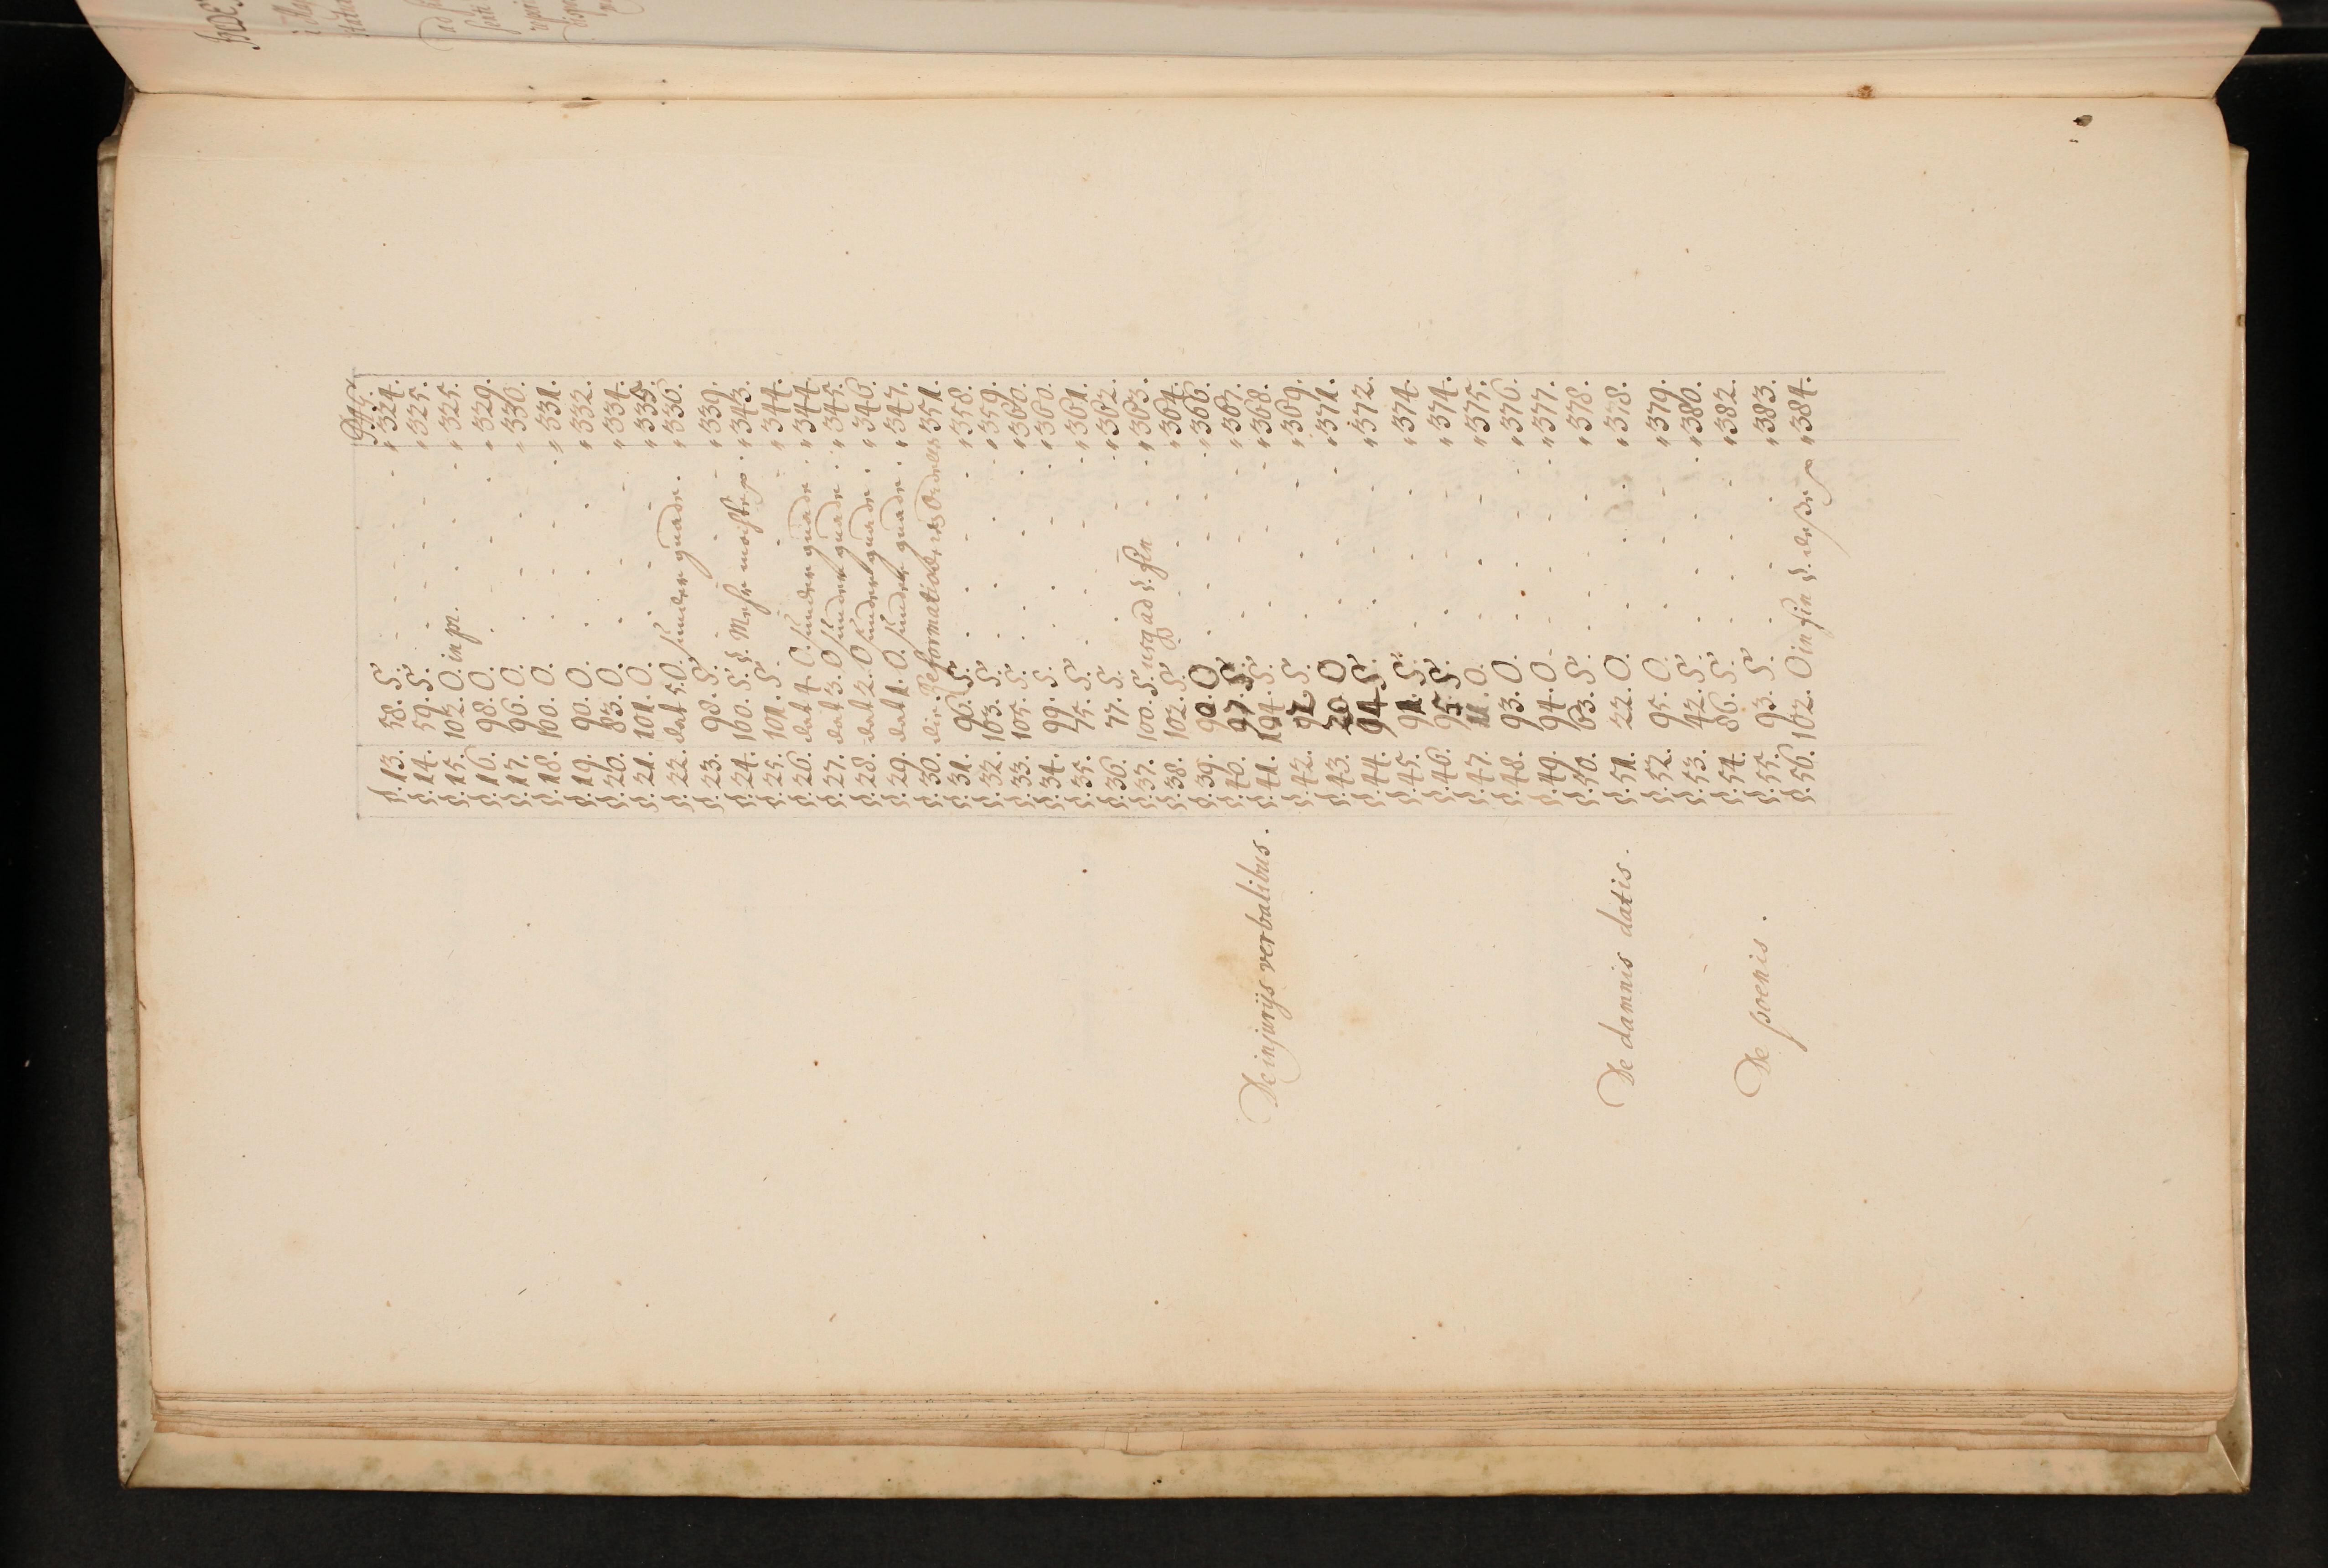 Pag.
§. 13. 58. S. „ 324.
§. 14. 59. S. „ 325.
§. 15. 102. O. in pr. „ 325.
§. 16. 98. O. „ 329.
§. 17. 96. O. „ 330.
§. 18. 100. O. „ 331.
§. 19. 90. O. „ 332.
§. 20. 83. O. „ 334.
§. 21. 101. O. „ 335.
§. 22. dat 5. O. sunder quade. „ 336.
§. 23. 98. S. „ 339.
§. 24. 100. S. §. Mehr „ 343.
§. 25. 101. S. „ 344.
§. 26. dat 4. O. sunder quade. „ 344.
§. 27. dat 3. O. sunder quade. „ 345.
§. 28. dat 2. O. sunder quade. „ 346.
§. 29. dat 1. O. sunder quade. „ 347.
§. 30. die Reformatio „ 351.
§. 31. 96. S. „ 358.
§. 32. 103. S. „ 359.
§. 33. 105. S. „ 360.
§. 34. 99. S. „ 360.
§. 35. 75. S. „ 361.
§. 36. 77. S. „ 362.
§. 37. 100. S. usq ad §. fin „ 363.
§. 38. 102. S. „ 364.
§. 39. 90. O. „ 366.
§. 40. 97. S. „ 367.
De injurijs verbalibus. §. 41. 104. S. „ 368.
§. 42. 92. S. „ 369.
§. 43. 20. O. „ 371.
§. 44. 94. S. „ 372.
§. 45. 91. S. „ 374.
§. 46. 95. S. „ 374.
§. 47. 11. O. „ 375.
§. 48. 93. O. „ 376.
§. 49. 94. O. „ 377.
§. 50. 63. S. „ 378.
De damnis datis. §. 51. 22. O. „ 378.
§. 52. 95. O. „ 379.
§. 53. 42. S. „ 380.
§. 54. 86. S. „ 382.
De poenis. §. 55. 93. S. „ 383.
§. 56. 102. O in fin §. „ 384.